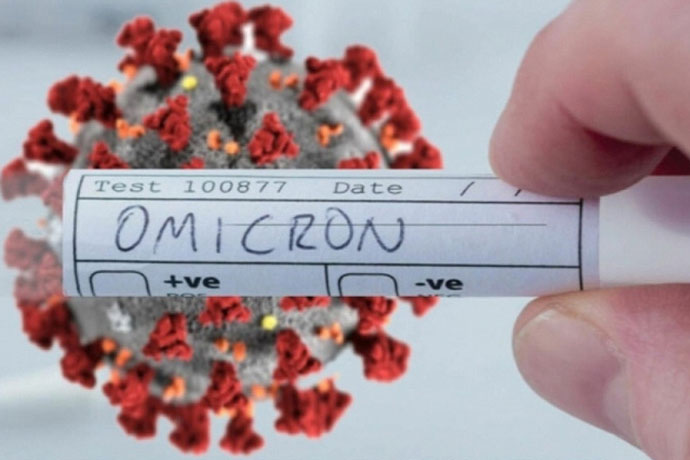 Test 100877 Date / /
OMICRON
+ve -ve